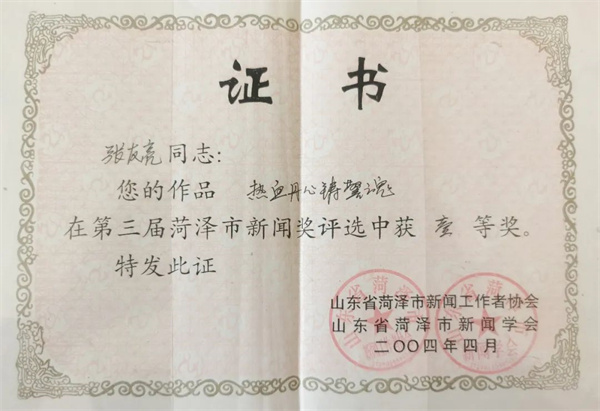 证 书
张友亮同志:
您的作品 热血丹心铸警魂
在第三届菏泽市新闻奖评选中获 壹 等奖。
特发此证
山东省菏泽市新闻工作者协会
山东省菏泽市新闻学会
二〇〇四年四月